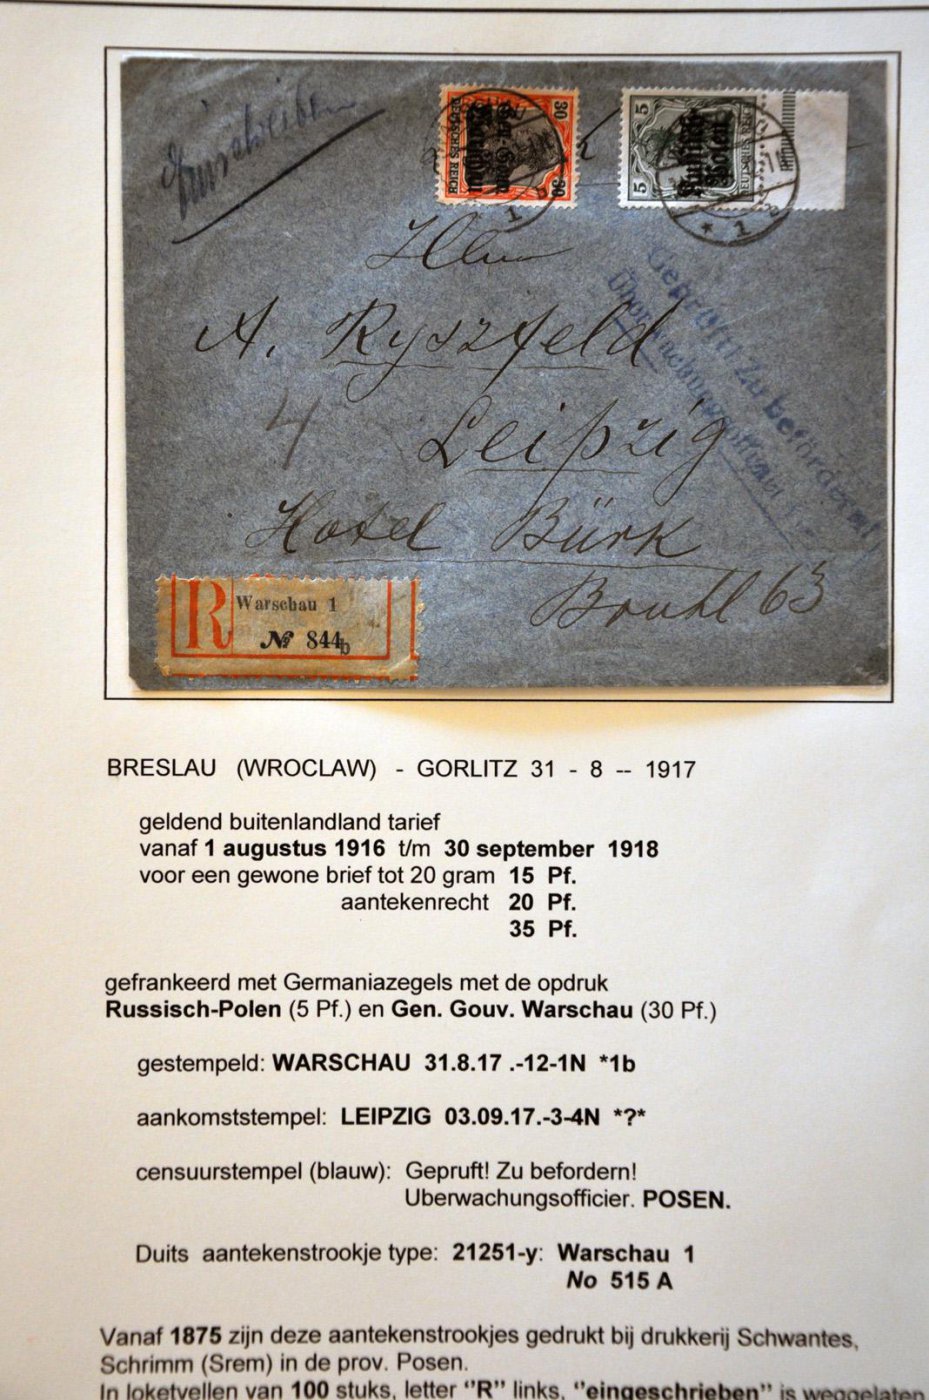 Einschreiben
30
30
DEUTSCHES REICH
Gen.-Gouv.
Warschau
1
5
5
DEUTSCHES REICH
Russisch-
Polen
* 1
Geprüft! Zu befördern!
Überwachungsoffizier
A. Ryszfeld
4
Leipzig
Hotel Bürk
Bruhl 63
R Warschau 1
№ 844b
BRESLAU (WROCLAW) - GORLITZ 31 - 8 -- 1917
geldend buitenlandland tarief
vanaf 1 augustus 1916 t/m 30 september 1918
voor een gewone brief tot 20 gram 15 Pf.
aantekenrecht 20 Pf.
35 Pf.
gefrankeerd met Germaniazegels met de opdruk
Russisch-Polen (5 Pf.) en Gen. Gouv. Warschau (30 Pf.)
gestempeld: WARSCHAU 31.8.17 .-12-1N *1b
aankomststempel: LEIPZIG 03.09.17.-3-4N *?*
censuurstempel (blauw): Gepruft! Zu befordern!
Uberwachungsofficier. POSEN.
Duits aantekenstrookje type: 21251-y: Warschau 1
No 515 A
Vanaf 1875 zijn deze aantekenstrookjes gedrukt bij drukkerij Schwantes,
Schrimm (Srem) in de prov. Posen.
In loketvellen van 100 stuks, letter ''R'' links, ''eingeschrieben'' is weggelaten